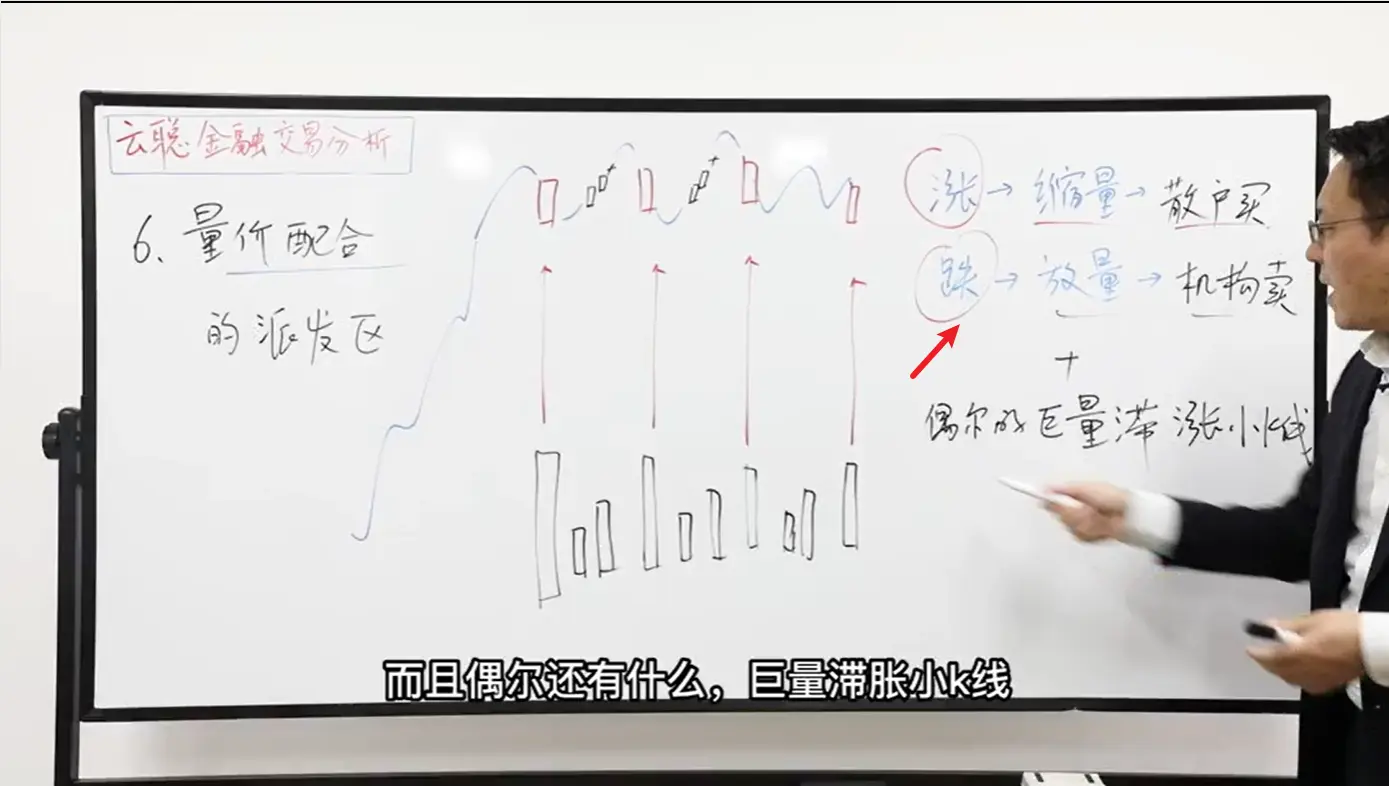 云聪金融交易分析
6、量价配合
的派发区
涨→缩量→散户买
跌→放量→机构卖
+
偶尔的巨量滞涨小K线
而且偶尔还有什么，巨量滞胀小k线